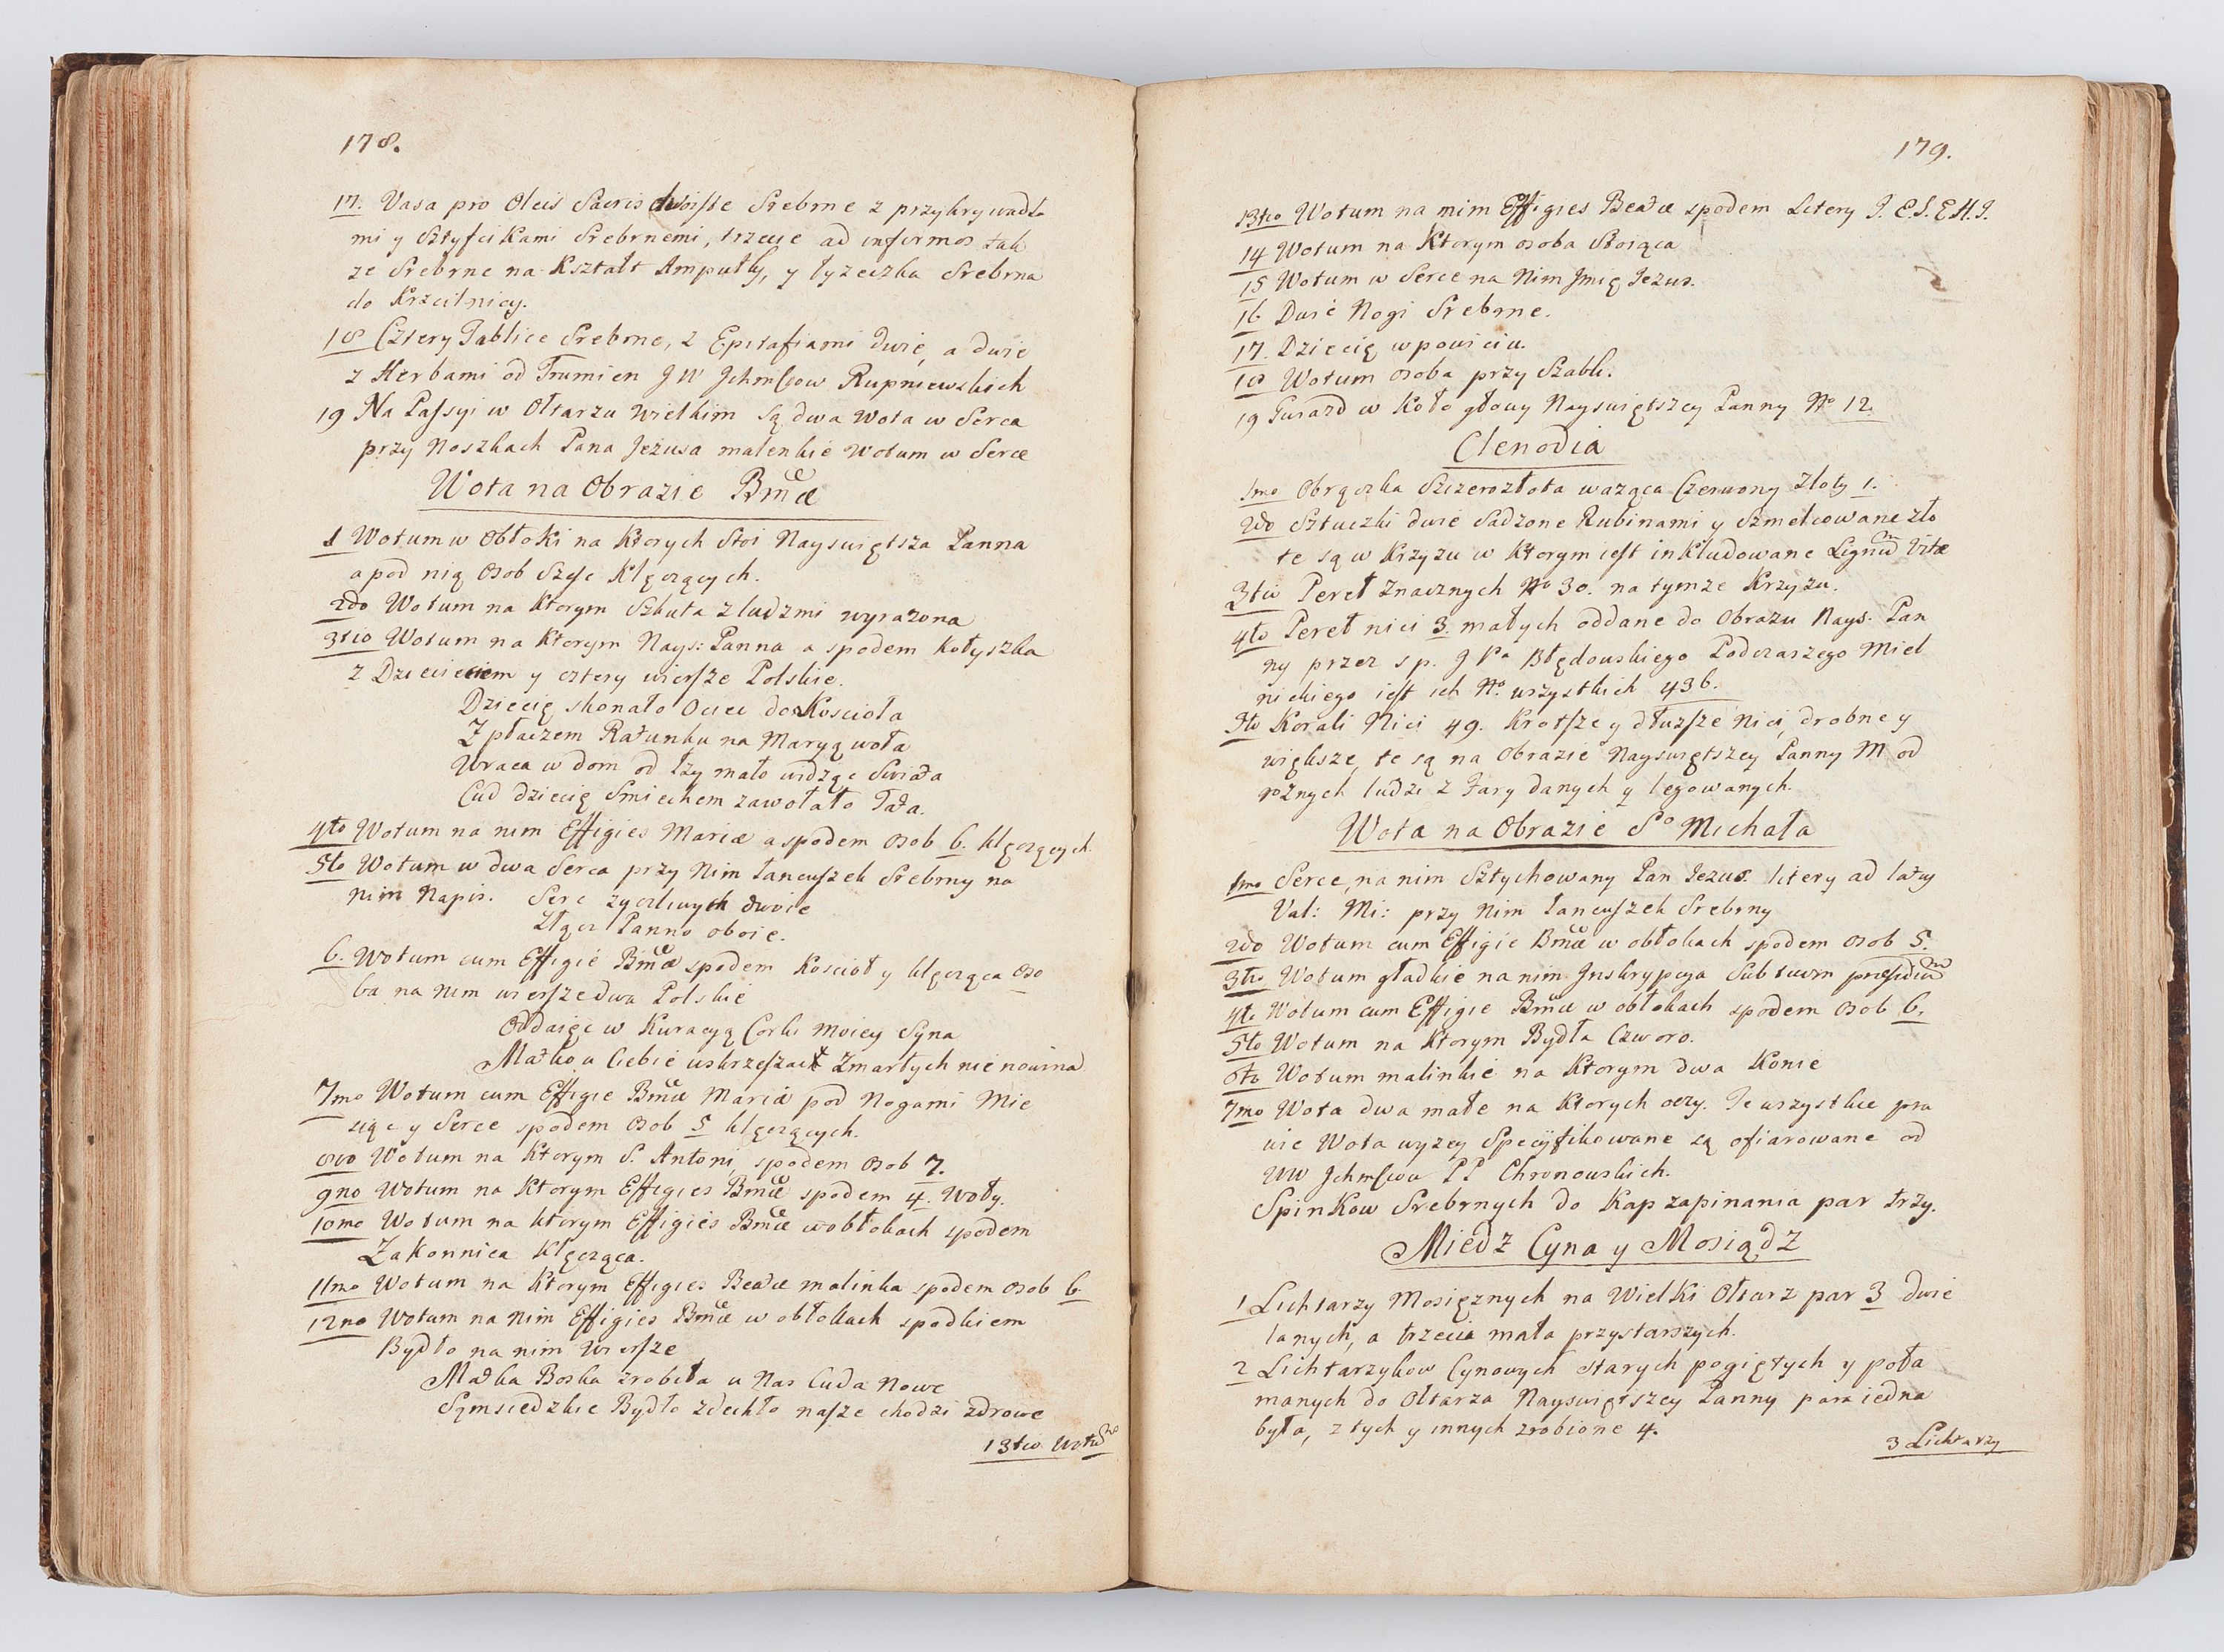 178.
17. Vasa pro Oleis Sacris dwoiste Srebrne z przykrywadła
mi y Sztyfcikami Srebrnemi, trzecie ad infirmos tak
ze Srebrne na Kształt Ampułki, y łyzeczka Srebrna
do Krzcilnicy.
18 Cztery Tablice Srebrne, z Epitafiami dwie, a dwie
z Herbami od Trumien J W Jchmściow Rupniewskich
19 Na Passyi w Ołtarzu Wielkim są dwa Wota w Serca
przy Noszkach Pana Jezusa malenkie Wotum w Serce
Wota na Obrazie Bmæ
1 Wotum w Obłoki na Ktorych Stoi Nayswiętsza Panna
a pod nią Osob Szesc Klęczących.
2do Wotum na Ktorym Szkuta z ludzmi wyrazona
3tio Wotum na Ktorym Nays: Panna a spodem Kołyszka
z Dziecieciem y cztery wiersze Polskie.
Dziecię skonało Ociec do Koscioła
Z płaczem Ratunku na Maryą woła
Wraca w dom od łzy mało widząc Swiata
Cud dziecię Smiechem zawołało Tata.
4to Wotum na nim Effigies Mariæ a spodem Osob 6. klęczących
5to Wotum w dwa Serca przy Nim Łancuszek Srebrny na
nim Napis. Serc zyczliwych dwoie
Złącz Panno oboie.
6. Wotum cum Effigie Bmæ spodem Koscioł y klęcząca Oso
ba na Nim wiersze dwa Polskie
Oddaięc w Kuracyą Corki moiey Syna
Matko u Ciebie wskrzeszać Zmarłych nie nowina
7mo Wotum cum Effigie Bmæ Mariæ pod Nogami Mie
siąc y Serce spodem Osob 5 klęczących.
8vo Wotum na Ktorym S. Antoni, spodem Osob 7.
9no Wotum na Ktorym Effigies Bmæ spodem 4. Woły.
10mo Wotum na ktorym Effigies Bmæ w obłokach spodem
Zakonnica Klęcząca.
11mo Wotum na Ktorym Effigies Beatæ malinka spodem Osob 6.
12no Wotum na Nim Effigies Bmæ w obłokach spodkiem
Bydło na nim Wiersze
Matka Boska zrobiła u Nas Cuda Nowe
Sąmsiedzkie Bydło zdechło nasze chodzi zdrowe
13tio Wotum
179.
13tio Wotum na nim Effigies Beatæ spodem Litery J. C. S. E H. J.
14 Wotum na Ktorym osoba Stoiąca
15 Wotum w Serce na Nim Jmię Jezus.
16 Dwie Nogi Srebrne.
17. Dziecię w powiciu.
18 Wotum osoba przy Szabli.
19 Gwiazd w Koło głowy Nayswiętszey Panny No 12.
Clenodia
1mo Obrączka Szczerozłota waząca Czerwony Złoty 1.
2do Sztuczki dwie Sadzone Rubinami y Szmelcowane zło
te są w Krzyzu w Ktorym iest inkludowane Lignum Vitæ
3tio Pereł Znacznych No 30. na tymze Krzyzu.
4to Pereł nici 3. małych oddane do Obrazu Nays. Pan
ny przez sp. J Pa Błędowskiego Podczaszego Miel
nickiego iest ich No. wszystkich 436.
5to Korali Nici 49. Krotsze y dłuzsze Nici, drobne y
większe, te są na Obrazie Nayswiętszey Panny M od
roznych ludzi z Fary danych y legowanych.
Wota na Obrazie So Michała
1mo Serce, na nim Sztychowany Pan Jezus litery ad latus
Val: Mi: przy Nim Łancuszek Srebrny
2do Wotum cum Effigie Bmæ w obłokach spodem osob 5.
3tio Wotum gładkie na nim Jnskrypcya Sub tuum præsidium
4to Wotum cum Effigie Bmæ w obłokach spodem Osob 6.
5to Wotum na Ktorym Bydła Czworo.
6to Wotum malinkie na Ktorym dwa Konie
7mo Wota dwa małe na Ktorych oczy. Te wszystkie pra
wie Wota wyzey Specyfikowane są ofiarowane od
WW Jchmściow PP Chronowskich.
Spinkow Srebrnych do Kap zapinania par trzy.
Miedz Cyna y Mosiądz
1 Lichtarzy Mosięznych na Wielki Ołtarz par 3 dwie
lanych, a trzecia mała przystarszych.
2 Lichtarzykow Cynowych starych pogiętych y poła
manych do Ołtarza Nayswiętszey Panny para iedna
była, z tych y innych zrobione 4.
3 Lichtarzy